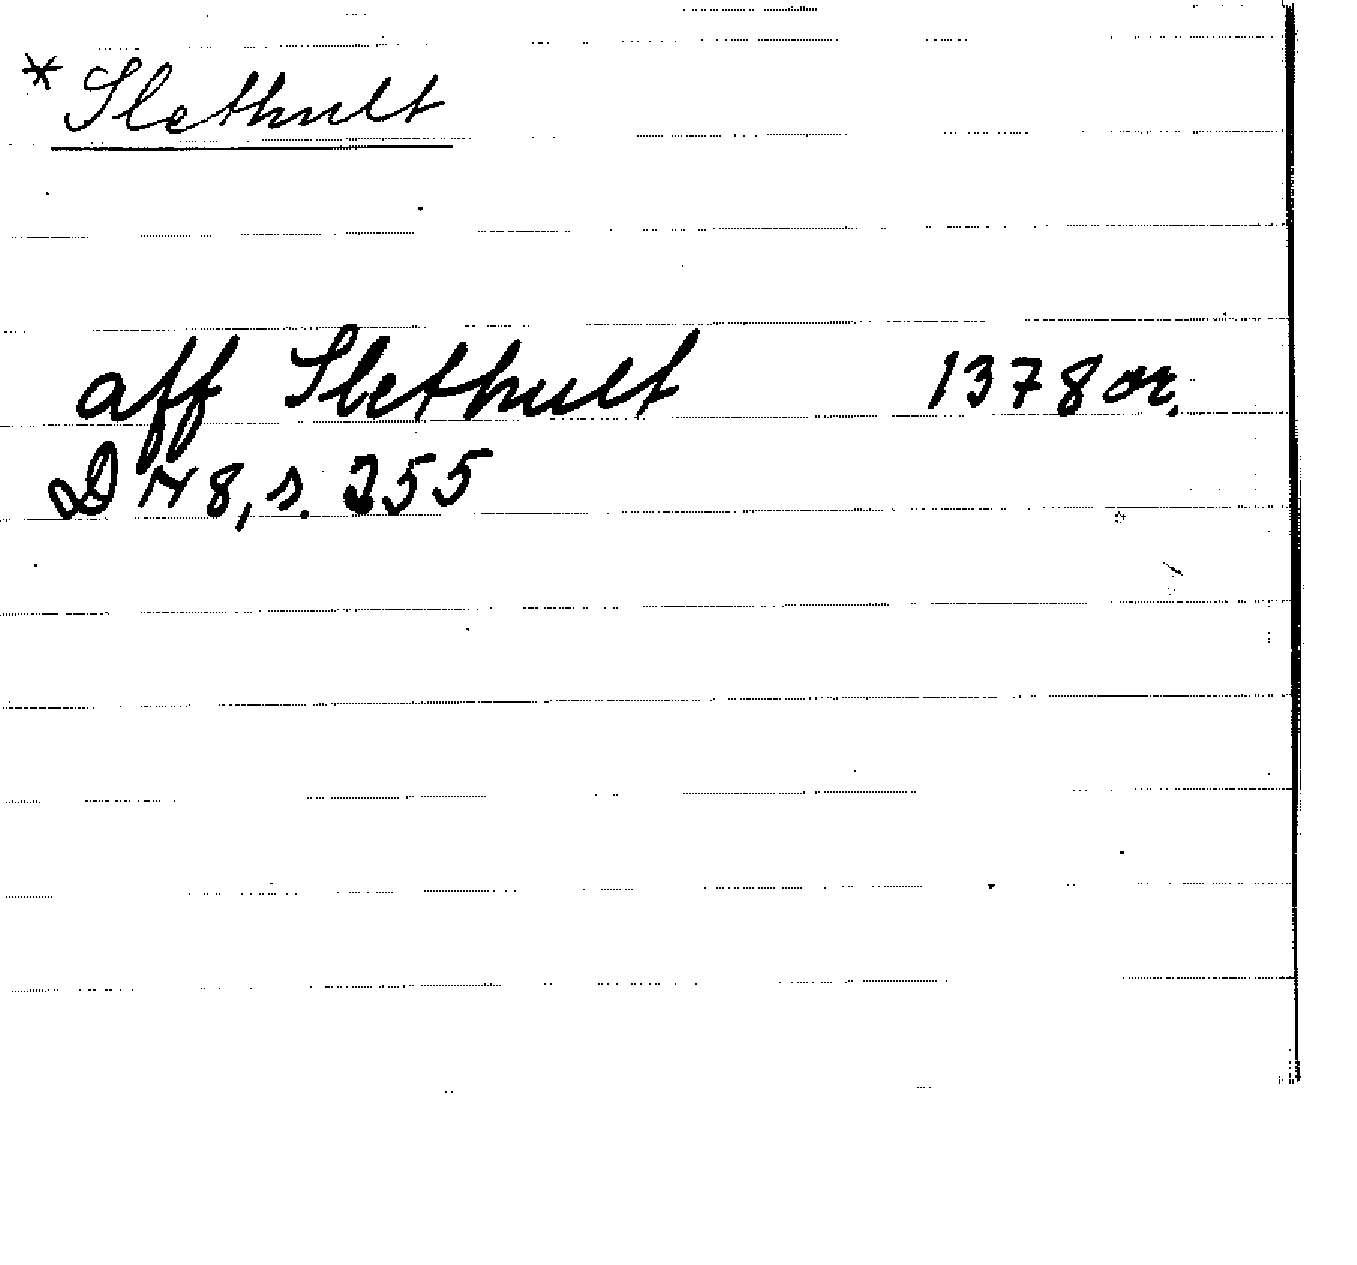 * Slethult
aff Slethult 1378 or.
D N 8, s. 255